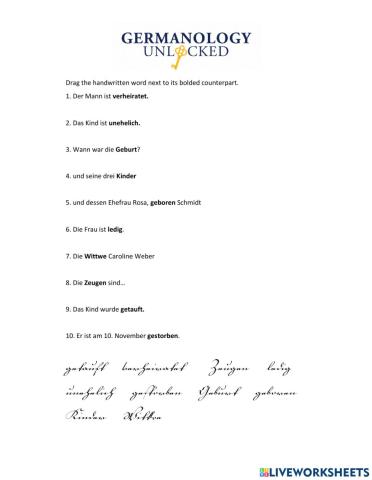 GERMANOLOGY
UNLOCKED
Drag the handwritten word next to its bolded counterpart.
1. Der Mann ist verheiratet.
2. Das Kind ist unehelich.
3. Wann war die Geburt?
4. und seine drei Kinder
5. und dessen Ehefrau Rosa, geboren Schmidt
6. Die Frau ist ledig.
7. Die Wittwe Caroline Weber
8. Die Zeugen sind...
9. Das Kind wurde getauft.
10. Er ist am 10. November gestorben.
getauft verheiratet Zeugen ledig
unehelich gestorben Geburt geboren
Kinder Wittwe
LIVEWORKSHEETS